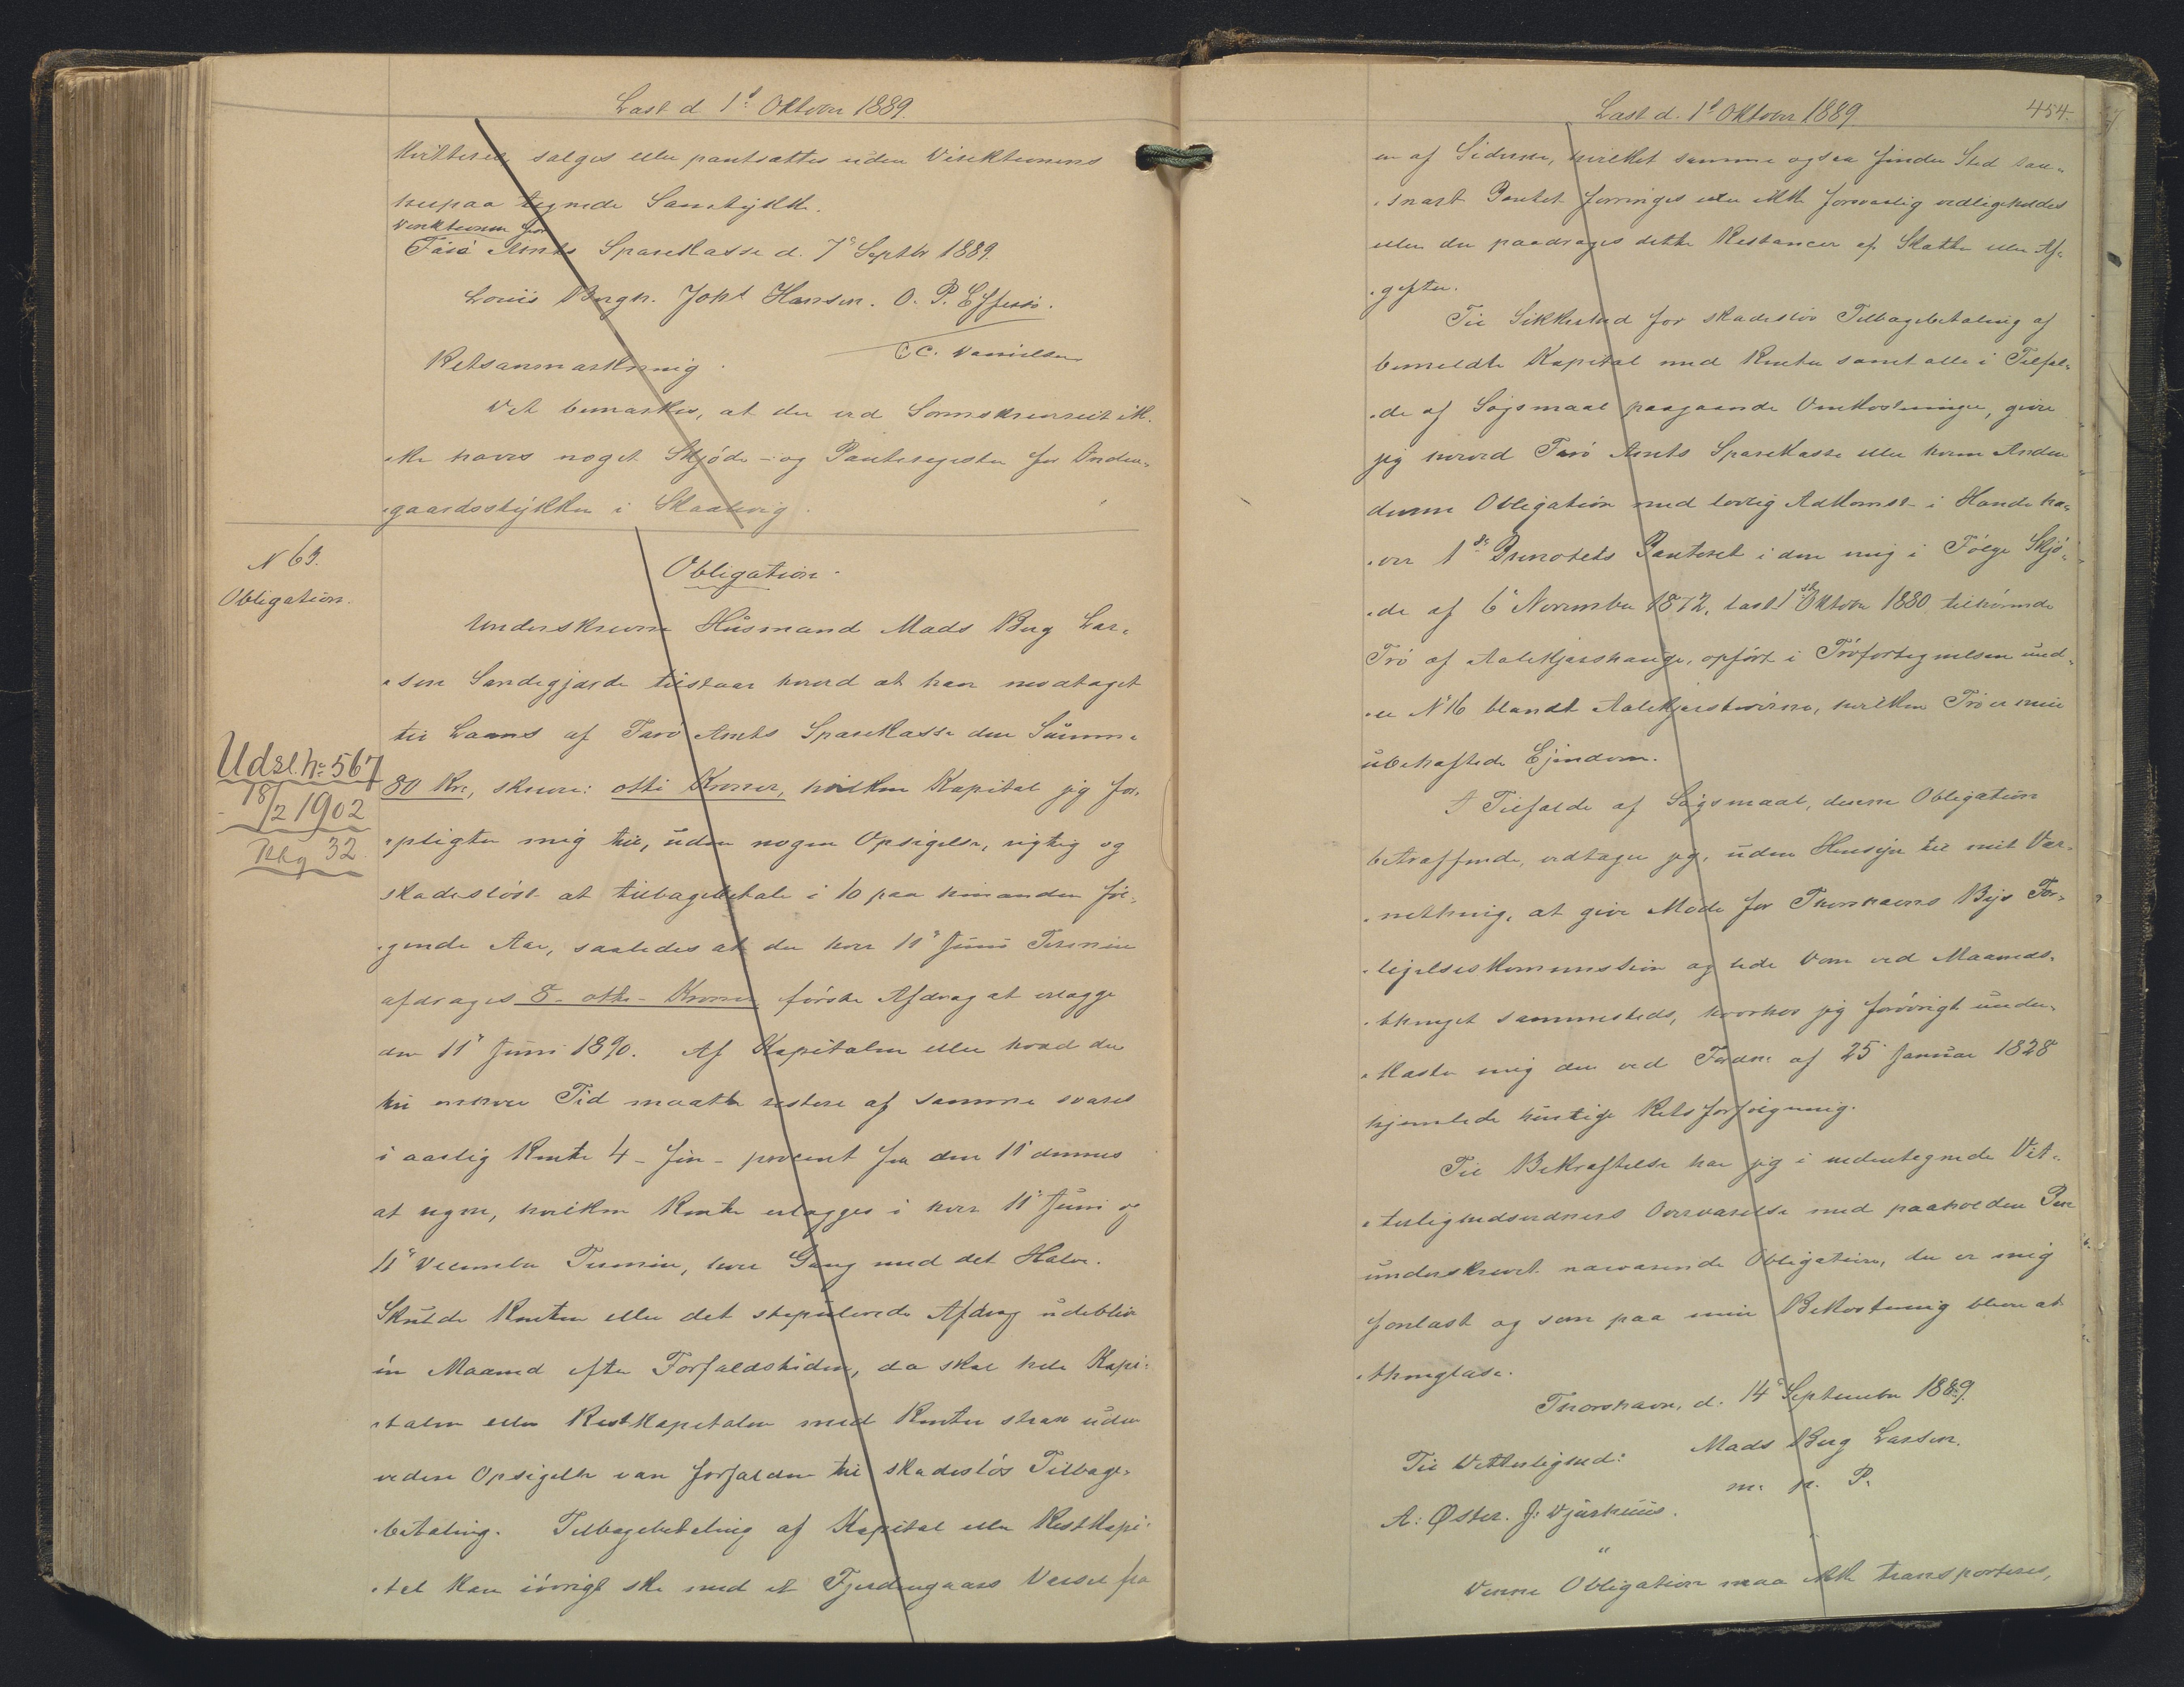 Læst d 1ste Oktober 1889.
kvitteres, sælges eller pantsættes uden Direktionens
herpaa tegnede Samtykke.
Direktionen for
Færø Amts Sparekasse d. 7de Septbr 1889.
Louis Bergh. Joh: Hansen. O. P. Effersöe.
C. C. Danielsen
Retsanmærkning.
Det bemærkes, at der ved Sorenskriveriet ik-
-ke haves noget Skjøde- og Panteregister for Inden-
-gaardsstykker i Skaalevig.
N 63.
Obligation.
Obligation.
Underskrevne Husmand Mads Berg Lar-
-sen Sandegjærde tilstaar herved at have modtaget
til Laans af Færø Amts Sparekasse den Summa
80 Kr, skriver: otti Kroner, hvilken Kapital jeg for-
-pligter mig til, uden nogen Opsigelse, rigtig og
skadesløst at tilbagebetale i 10 paa hinanden føl-
-gende Aar, saaledes at der hver 11te Juni Termin
afdrages 8 - otte - Kroner, første Afdrag at erlægge
den 11te Juni 1890. Af Kapitalen eller hvad der
til enhver Tid maatte restere af samme svares
i aarlig Rente 4 - fire - procent fra den 11te dennes
at regne, hvilken Rente erlægges i hver 11te Juni og
11te December Termin, hver Gang med det Halve.
Skulde Renten eller det stipulerede Afdrag udeblive
én Maaned efter Forfaldstiden, da skal hele Kapi-
-talen eller Restkapitalen med Renter strax uden
videre Opsigelse være forfalden til skadesløs Tilbage-
-betaling. Tilbagebetaling af Kapital eller Restkapi-
-tal kan iøvrigt ske med et Fjerdingaars Varsel fra
Udsl. No 567
18/2 1902
Pkg 32
Læst d. 1ste Oktober 1889.
454.
en af Siderne, hvilket samme ogsaa finder Sted saa-
-snart Pantet forringes eller ikke forsvarlig vedligeholdes
eller der paadrages dette Restancer af Skatter eller Af-
-gifter.
Til Sikkerhed for skadesløs Tilbagebetaling af
bemeldte Kapital med Renter samt alle i Tilfæl-
-de af Søgsmaal paagaaende Omkostninger, giver
jeg herved Færø Amts Sparekasse eller hvem Anden
denne Obligation med lovlig Adkomst i Hænde ha-
-ver 1ste Prioritets Panteret i den mig i Følge Skjø-
-de af 6te November 1872, læst 1ste Oktober 1880 tilhørende
Trø af Aalekjærshauge, opført i Trøfortegnelsen und-
-er No 16 blandt Aalekjærstrøerne, hvilken Trø er min
ubehæftede Ejendom.
I Tilfælde af Søgsmaal, denne Obligation
betræffende, vedtager jeg, uden Hensyn til mit Vær-
-nething, at give Møde for Thorshavns Byes For-
-ligelseskommission og lide Dom ved Maaneds-
-thinget sammesteds, hvorhos jeg forøvrigt under-
-kaster mig den ved Fordn: af 25 Januar 1828
hjemlede hurtige Retsforfølgning.
Til Bekræftelse har jeg i undertegnede Vit-
-terlighedsvidners Overværelse med paaholden Pen
underskrevet nærværende Obligation, der er mig
forelæst og som paa min Bekostning bliver at
-thinglæse.
Thorshavn, d. 14de September 1889.
Mads Berg Larsen.
m. p. P.
Til Vitterlighed:
A: Øster. J: Djurhuus.
"
Denne Obligation maa ikke transporteres,